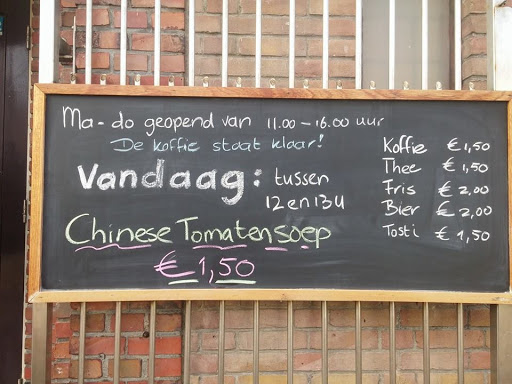 Ma - do geopend van 11.00 - 16.00 uur
De koffie staat klaar!
Vandaag: tussen
12 en 13 u
Chinese Tomatensoep
€ 1,50
Koffie € 1,50
Thee € 1,50
Fris € 2,00
Bier € 2,00
Tosti € 1,50